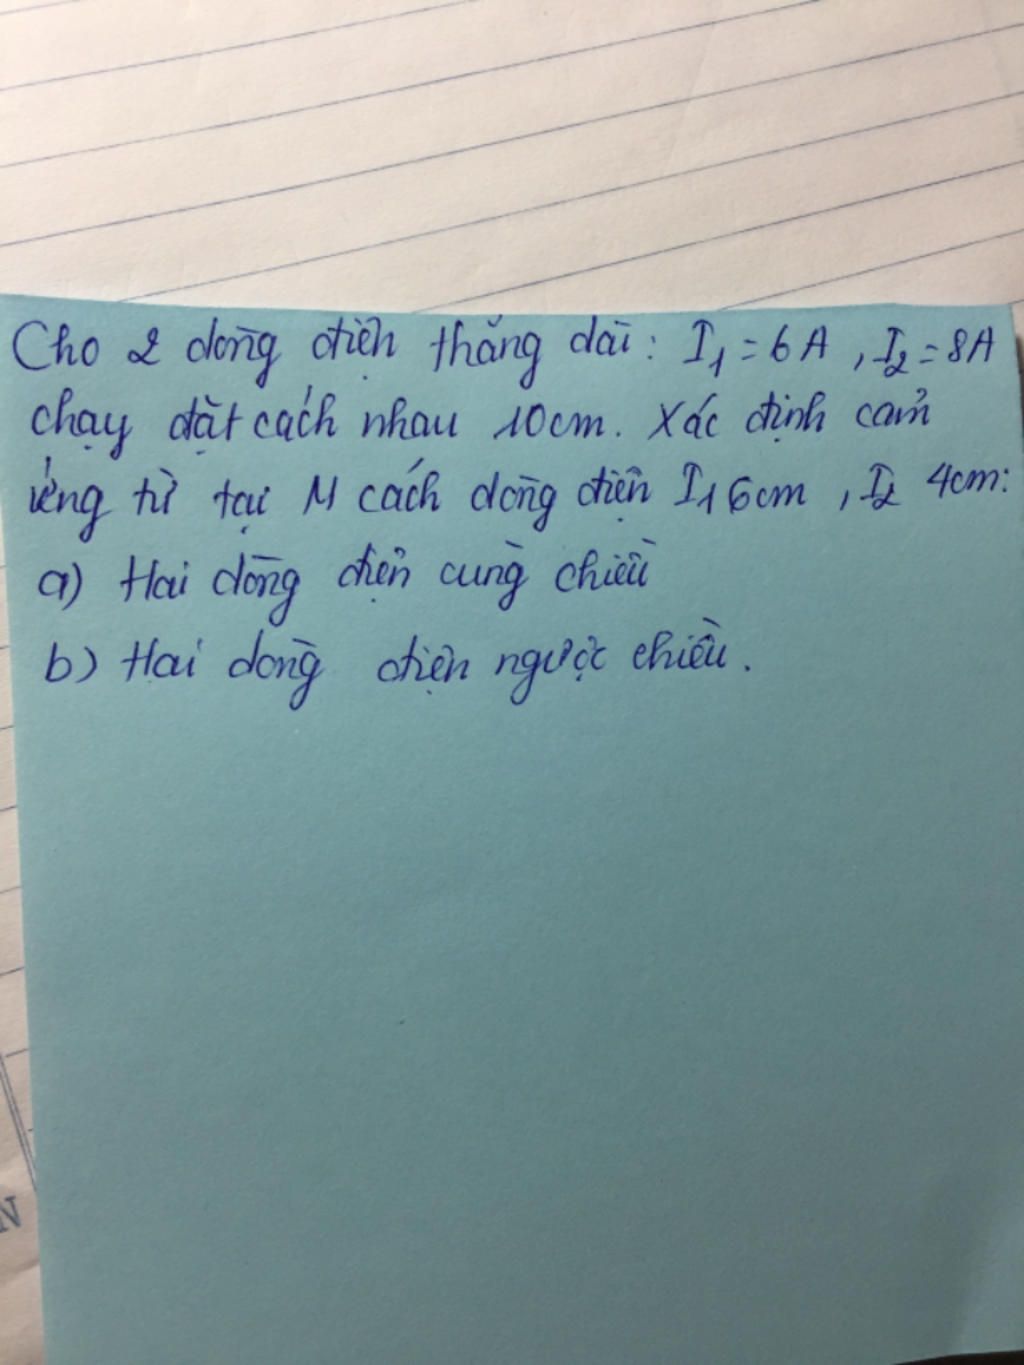 Cho 2 dòng điện thẳng dài: I₁ = 6A, I₂ = 8A
chạy đặt cách nhau 10cm. Xác định cảm
ứng từ tại M cách dòng điện I₁ 6cm, I₂ 4cm:
a) Hai dòng điện cùng chiều
b) Hai dòng điện ngược chiều.
N